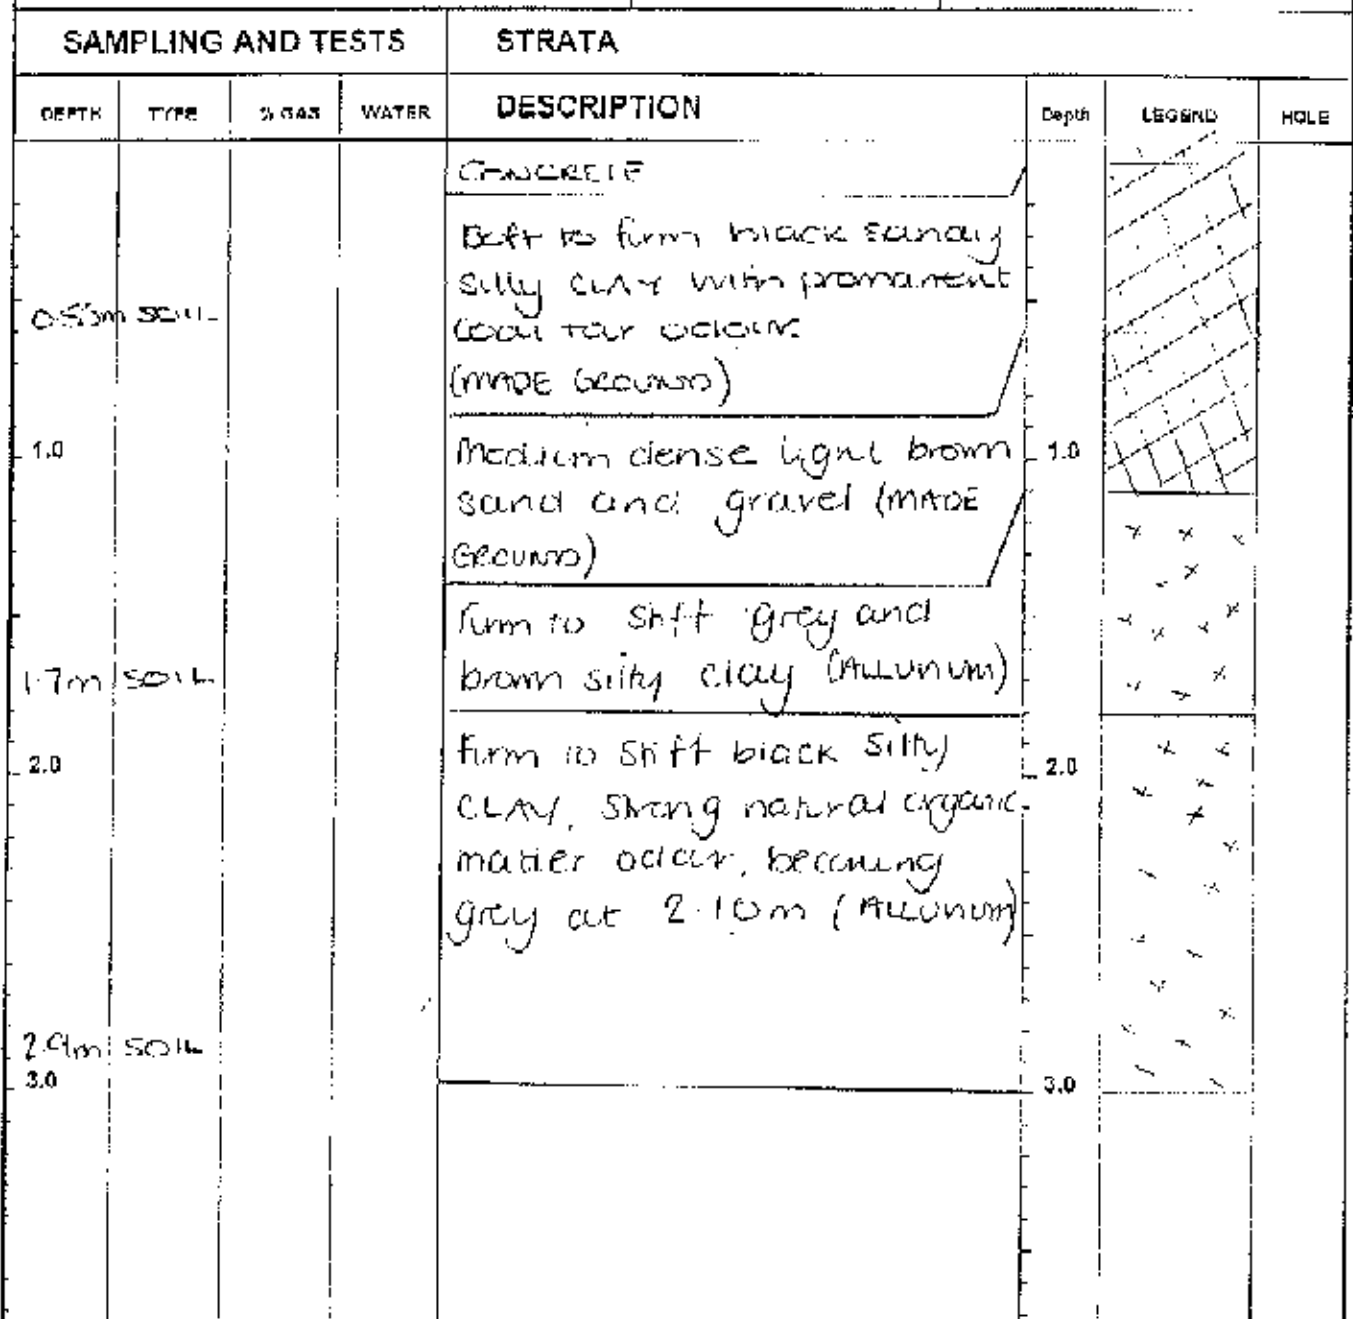 SAMPLING AND TESTS STRATA
DEPTH TYPE % GAS WATER DESCRIPTION Depth LEGEND HOLE
CONCRETE
Soft to firm black sandy
silty CLAY with promanent
coal tar odour
0.55m SOIL
(MADE GROUND)
1.0 Medium dense light brown 1.0
sand and gravel (MADE
GROUND)
Firm to stiff grey and
1.7m SOIL brown silty clay (ALLUVIUM)
2.0 Firm to stiff black silty 2.0
CLAY, strong natural organic
matter odour, becoming
grey at 2.10m (ALLUVIUM)
2.9m SOIL
3.0 3.0